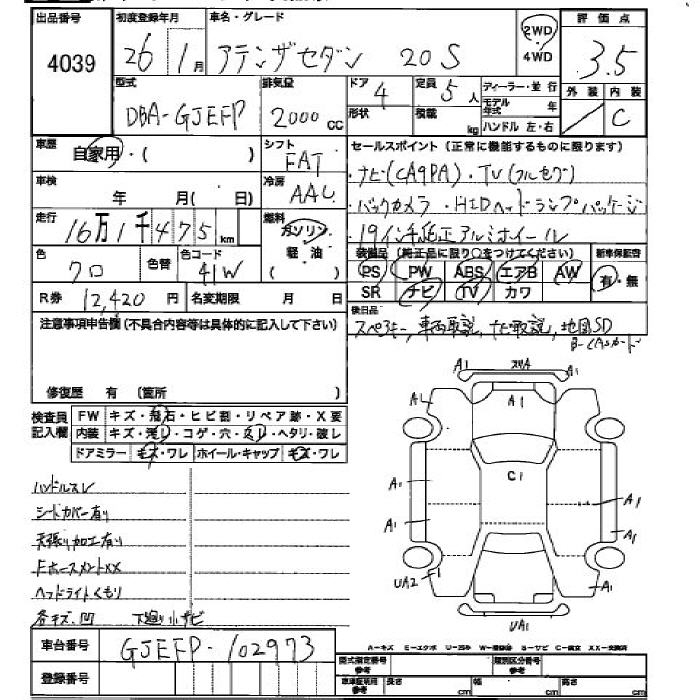 出品番号 初度登録年月 車名・グレード 評価点
4039 26 1月 アテンザセダン 20S 2WD 4WD 3.5
型式 排気量 ドア 4 定員 5人 ディーラー・並行 外装 内装
DBA-GJEFP 2000 CC 形状 積載 kg モデル年式 年 ハンドル 左・右 C
車歴 自家用・( ) シフト FAT セールスポイント(正常に機能するものに限ります)
車検 年 月( 日) 冷房 AAC ・ナビ(CA9PA)・TV(フルセグ)
・バックカメラ・HIDヘッドランプパッケージ
走行 16万1千475km 燃料 ガソリン 軽油 ・19インチ純正アルミホイール
色 クロ 色替 色コード 41W 装備品(純正品に限り○をつけてください) 新車保証書
PS PW ABS エアB AW 有・無
R券 12,420円 名変期限 月 日 SR ナビ TV カワ
注意事項申告欄(不具合内容等は具体的に記入して下さい) 後日品
スペアキー, 車両取説, ナビ取説, 地図SD
B-CASカード
修復歴 有 (箇所 )
検査員記入欄 FW キズ・飛石・ヒビ割・リペア跡・X要
内装 キズ・汚レ・コゲ・穴・ ・ヘタリ・破レ
ドアミラー キズ・ワレ ホイール・キャップ キズ・ワレ
A1 A1 A1 A1
C1
A1 A1 A1 A1
UA2 F1 A1
UA1
ハンドルスレ
シートカバー有り
天張り加工有り
ヘッドライトくもり
各キズ、凹 下廻り小サビ
A-キズ E-エクボ U-凹み W-補修跡 S-サビ C-腐食 XX-交換済
車台番号 GJEFP-102973
型式指定番号 参考 類別区分番号 参考
登録番号 車車証明用 参考 長さ cm 幅 cm 高さ cm